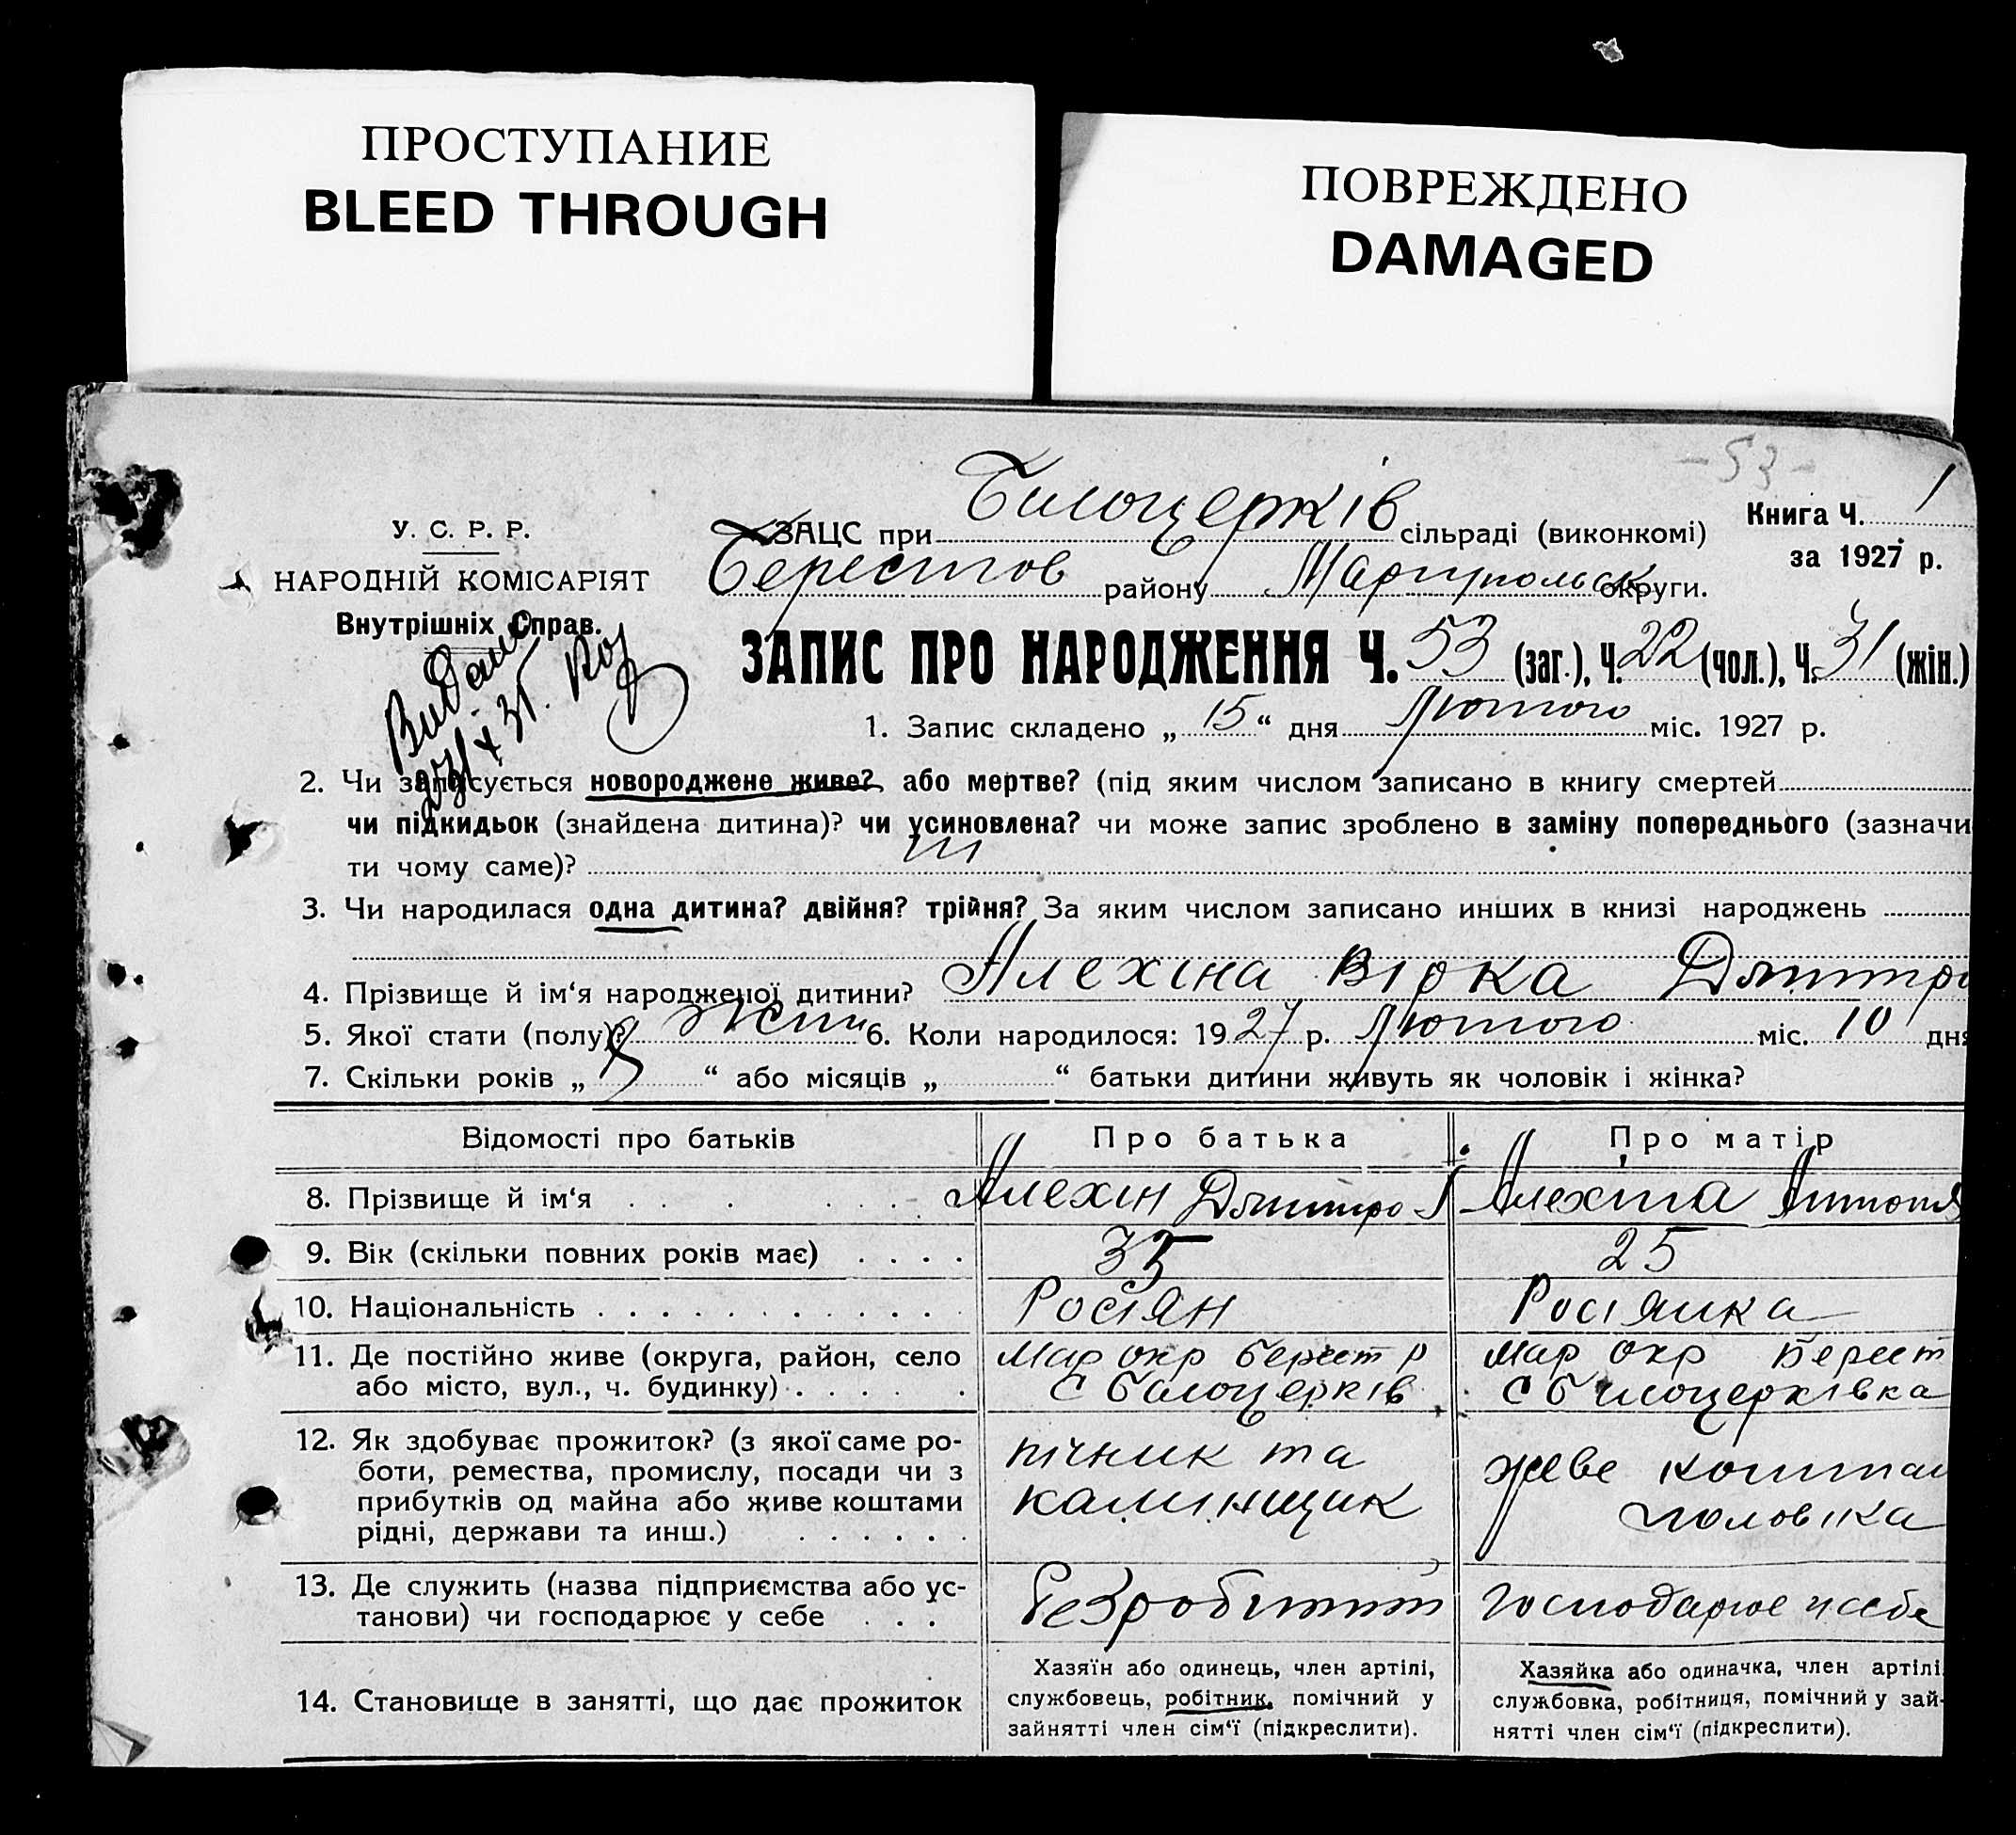 ПРОСТУПАНИЕ
BLEED THROUGH
ПОВРЕЖДЕНО
DAMAGED
- 53 -
У. С. Р. Р.
НАРОДНІЙ КОМІСАРІЯТ
Внутрішніх Справ.
ЗАЦС при Билоцерків сільраді (виконкомі)
Книга Ч. 1
за 1927 р.
Берестов району Маріупольськ округи.
ЗАПИС ПРО НАРОДЖЕННЯ Ч. 53 (заг.), Ч. 22 (чол.), Ч. 31 (жін.)
1. Запис складено „ 15 “ дня Лютого міс. 1927 р.
2. Чи записується новороджене живе? або мертве? (під яким числом записано в книгу смертей
чи підкидьок (знайдена дитина)? чи усиновлена? чи може запис зроблено в заміну попереднього (зазначи
ти чому саме)?
3. Чи народилася одна дитина? двійня? трійня? За яким числом записано инших в книзі народжень
4. Прізвище й ім‘я народженої дитини? Алехіна Вірка Дмитро
5. Якої стати (полу)? жин 6. Коли народилося: 1927 р. Лютого міс. 10 дня
7. Скільки років „ “ або місяців „ “ батьки дитини живуть як чоловік і жінка?
Відомості про батьків Про батька Про матір
8. Прізвище й ім‘я Алехін Дмитро Алехіна
9. Вік (скільки повних років має) 35 25
10. Національність Росіян Росіянка
11. Де постійно живе (округа, район, село Мар окр Берест р Мар окр Берест
або місто, вул., ч. будинку) С Билоцерків С Билоцерківка
12. Як здобуває прожиток? (з якої саме ро-
боти, ремества, промислу, посади чи з
прибутків од майна або живе коштами
рідні, держави та инш.)
пічник та
камінщик
живе коштам
чоловіка
13. Де служить (назва підприємства або ус-
танови) чи господарює у себе
безробітній
господарює у себе
14. Становище в занятті, що дає прожиток
Хазяїн або одинець, член артілі,
службовець, робітник, помічний у
зайнятті член сім‘ї (підкреслити).
Хазяйка або одиначка, член артілі
службовка, робітниця, помічний у зай-
нятті член сім‘ї (підкреслити).